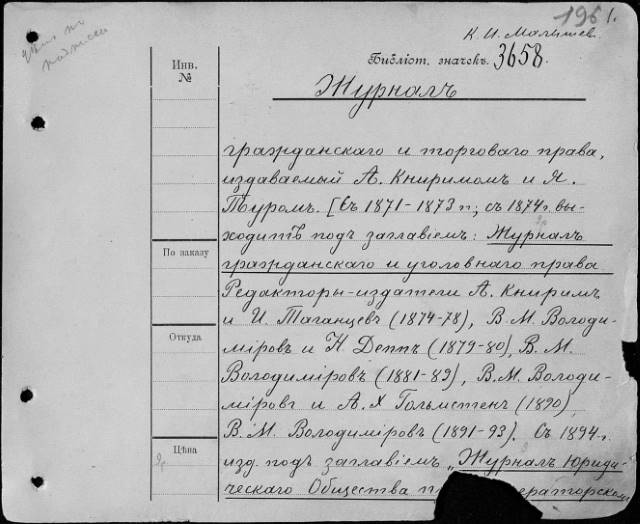 196 г.
К. И. Малышев.
цѣна по
подписи
Инв.
№
Библіот. значекъ. 3658.
Журналъ
гражданскаго и торговаго права,
издаваемый А. Книримомъ и Я.
Туромъ. [Съ 1871-1873 г; съ 1874 г. вы-
ходитъ подъ заглавіемъ: Журналъ
По заказу
гражданскаго и уголовнаго права
Редакторы-издатели А. Книримъ
и И. Таганцевъ (1874-78), В. М. Володи-
Откуда
міровъ и Н. Деппъ (1879-80), В. М.
Володиміровъ (1881-89), В. М. Володи-
міровъ и А. Х Гольмстенъ (1890)
В. М. Володиміровъ (1891-93). Съ 1894 г.
Цѣна
изд. подъ заглавіемъ „Журналъ Юриди-
ческаго Общества п ераторском